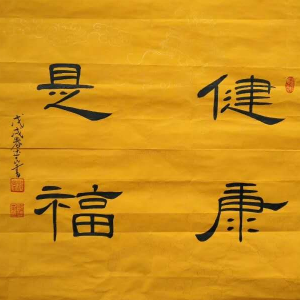 健康
是福
戊戌春